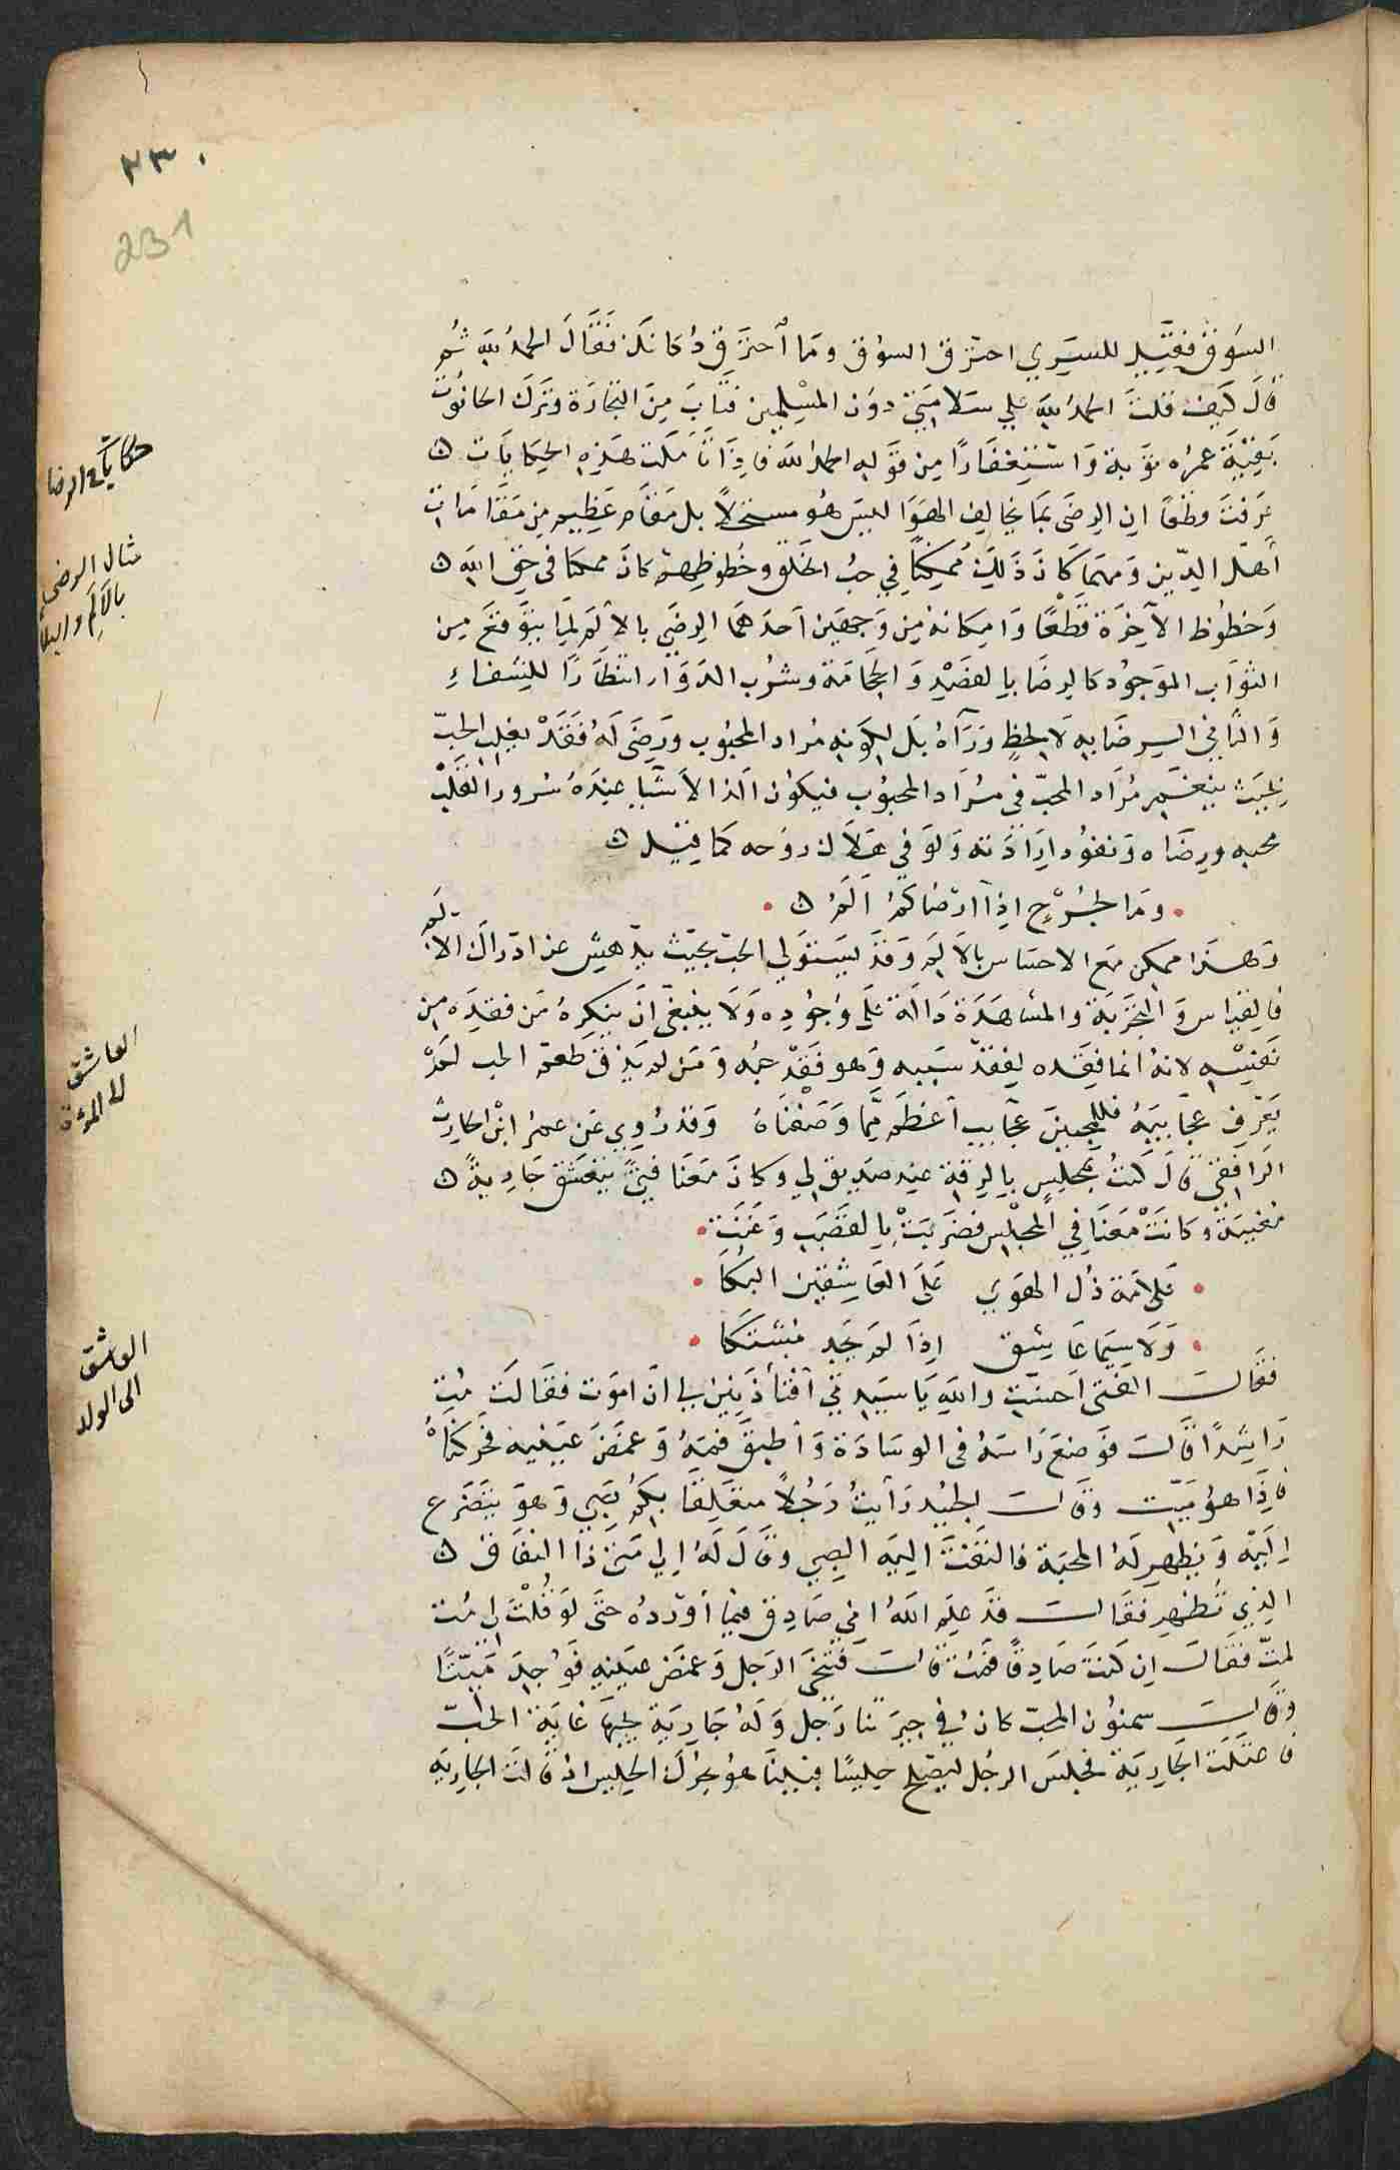 ٢٣٠
231
السوق فقيل للسري احترق السوق وما أحترق دكانك فقال الحمد لله ثم
قال كيف قلت الحمد لله علي سلامتي دون المسلمين فتاب من التجارة وترك الحانوت
بقية عمره توبة واستغفارا من قوله الحمد لله فاذا تأملت هذه الحكايات
عرفت قطعا ان الرضى بما يخالف الهوا ليس هو مستحيلا بل مقام عظيم من مقامات
أهل الدين ومهما كان ذلك ممكنا في حب الخلق وحظوظهم كان ممكنا في حق الله
وحظوظ الآخرة قطعا وامكانه من وجهين احدهما الرضى بالألم لما يتوقع من
الثواب الموجود كالرضا بالفصد والحجامة وشرب الدواء انتظارا للشفاء
والثاني الرضا به لا لحظ ورآه بل لكونه مراد المحبوب ورضى له فقد يغلب الحب
بحيث ينغمر مراد المحب في مراد المحبوب فيكون الذ الاشيا عنده سرور القلب
محبه ورضاه ونفوذ ارادته ولو في هلاك روحه كما قيل
وما لجرح اذا ارضاكم ألم
وهذا ممكن مع الاحساس بالألم وقد يستولي الحب بحيث يدهش عن ادراك الألم
فالقياس والتجربة والمشاهدة دالة على وجوده ولا ينبغي ان ينكره من فقده من
نفسه لانه انما فقده لفقد سببه وهو فقد حبه ومن لم يذق طعم الحب لم
يعرف عجايبه فللمحبين عجايب أعظم مما وصفناه وقد روي عن عمر ابن الحارث
الرافقي قال كنت بمجلس بالرقة عند صديق لي وكان معنا فتى يتعشق جارية
مغنية وكانت معنا في المجلس فضربت بالقضيب وغنت
علامة ذل الهوي على العاشقين البكا
ولا سيما عاشق اذا لم يجد مشتكا
فقال الفتى احسنت والله يا سيدتي أفتأذنين لي ان اموت فقالت مت
راشدا قال فوضع راسه في الوسادة وأطبق فمه وغمض عينيه فحركناه
فاذا هو ميت وقال الجنيد رأيت رجلا متعلقا بكم صبي وهو يتضرع
اليه ويظهر له المحبة فالتفت اليه الصبي وقال له الي متى ذا النفاق
الذي تظهر فقال قد علم الله اني صادق فيما أورده حتى لو قلت لي مت
لمت فقال ان كنت صادقا فمت قال فتنحى الرجل وغمض عينيه فوجد ميتا
وقال سمنون المحب كان في جيرتنا رجل وله جارية يحبها غاية الحب
فاعتلت الجارية فجلس الرجل ليصلح حيسا فبينا هو يحرك الحيس اذ قالت الجارية
حكايات الرضا
مثال الرضى
بالألم والبلا
العاشق
العاشق
الى الولد